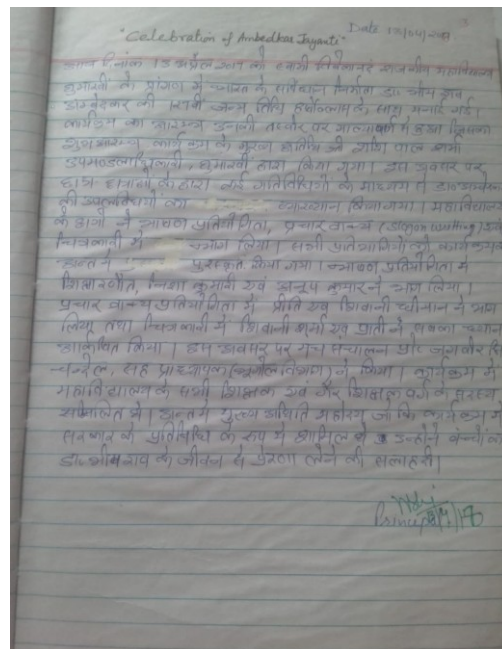 Date 13/04/201
"Celebration of Ambedkar Jayanti"
आज दिनांक 13 अप्रैल को स्वामी विवेकानंद राजकीय महाविद्यालय
घुमारवीं के प्रांगण में भारत के संविधान निर्माता डॉ. भीम राव
अम्बेदकर की जन्म तिथि हर्षोल्लास के साथ मनाई गई।
कार्यक्रम का आरम्भ उनकी तस्वीर पर माल्यार्पण से हुआ जिसका
शुभारम्भ कार्यक्रम के मुख्य अतिथि श्री शशि पाल शर्मा
उपमण्डलाधिकारी, घुमारवीं द्वारा किया गया। इस अवसर पर
छात्र छात्राओं के द्वारा कई गतिविधियों के माध्यम से डा० अम्बेदकर
की उपलब्धियों का व्याख्यान किया गया। महाविद्यालय
के छात्रों ने भाषण प्रतियोगिता, प्रचार वाक्य (slogan writting)
चित्रकारी में भाग लिया। सभी प्रतिभागियों को कार्यक्रम
अन्त में पुरस्कृत किया गया। भाषण प्रतियोगिता में
निशा कुमारी एवं अनूप कुमार ने भाग लिया।
प्रचार वाक्य प्रतियोगिता में प्रीति एवं शिवानी ने भाग
लिया तथा चित्रकारी में शिवानी शर्मा एवं प्रीती ने सबका ध्यान
आकर्षित किया। इस अवसर पर मंच संचालन प्रो०
चन्देल, सह प्राध्यापक (भूगोल विभाग) ने किया। कार्यक्रम में
महाविद्यालय के सभी शिक्षक एवं गैर शिक्षक वर्ग के सदस्य
सम्मिलित थे। अन्त में मुख्य अतिथि महोदय जो कि कार्यक्रम में
सरकार के प्रतिनिधि के रूप में शामिल थे उन्होंने बच्चों को
डा० भीम राव के जीवन से प्रेरणा लेने की सलाह दी।
Principal